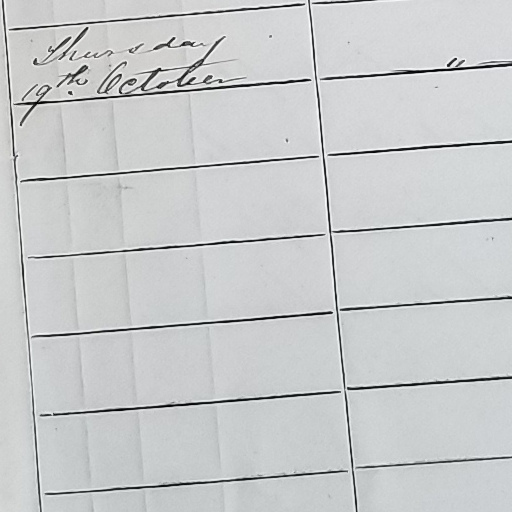 Thursday
19th. October "